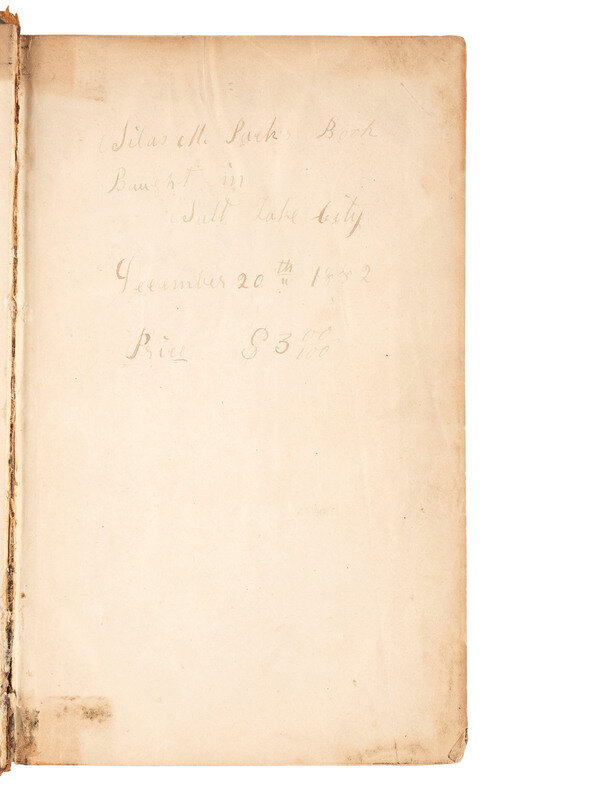 Silas M. Parks Book
Baught in
Salt Lake City
December 20th 1882
Price $3 00/100